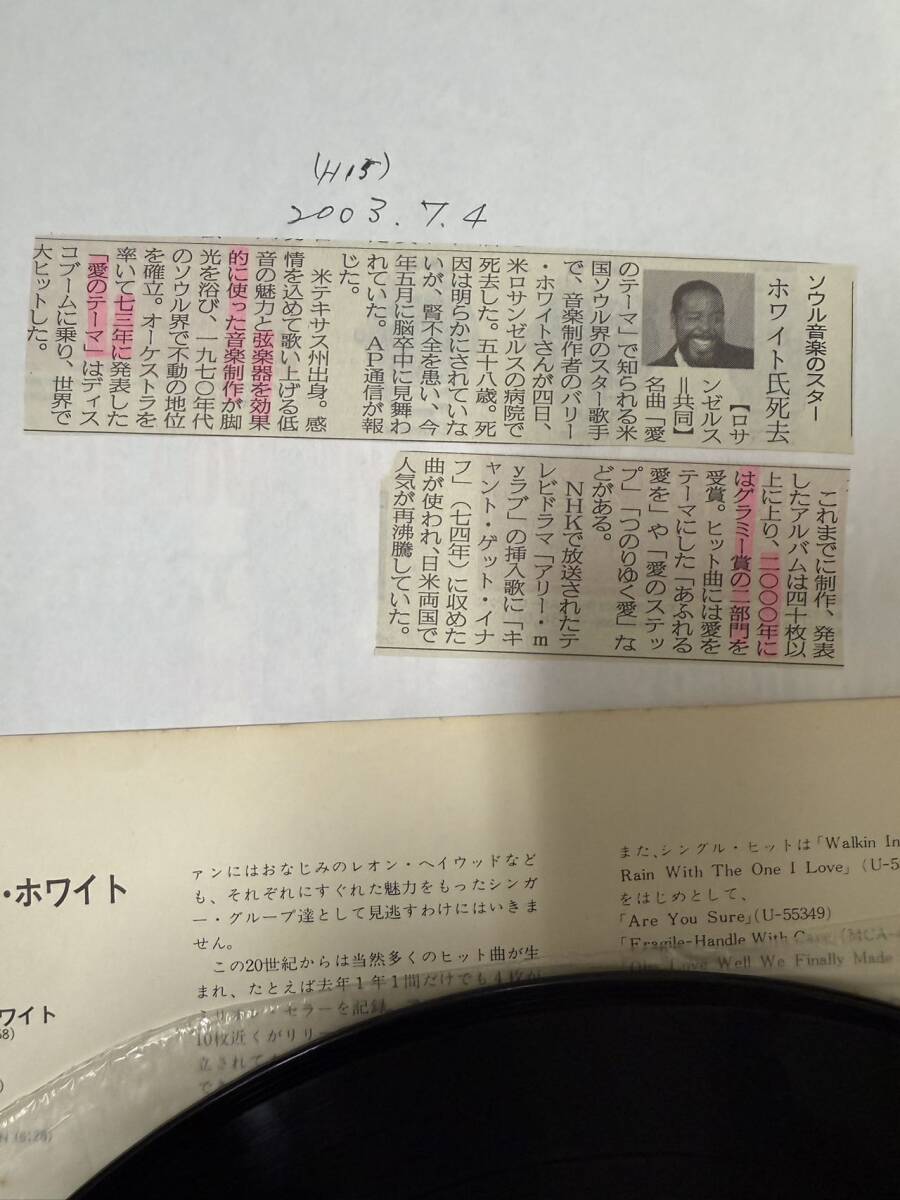 (H15)
2003.7.4
ソウル音楽のスター
ホワイト氏死去
【ロサ
ンゼルス
＝共同】
名曲「愛
のテーマ」で知られる米
国ソウル界のスター歌手
で、音楽制作者のバリー
・ホワイトさんが四日、
米ロサンゼルスの病院で
死去した。五十八歳。死
因は明らかにされていな
いが、腎不全を患い、今
年五月に脳卒中に見舞わ
れていた。ＡＰ通信が報
じた。
米テキサス州出身。感
情を込めて歌い上げる低
音の魅力と弦楽器を効果
的に使った音楽制作が脚
光を浴び、一九七〇年代
のソウル界で不動の地位
を確立。オーケストラを
率いて七三年に発表した
「愛のテーマ」はディス
コブームに乗り、世界で
大ヒットした。
これまでに制作、発表
したアルバムは四十枚以
上に上り、二〇〇〇年に
はグラミー賞の二部門を
受賞。ヒット曲には愛を
テーマにした「あふれる
愛を」や「愛のステッ
プ」「つのりゆく愛」な
どがある。
ＮＨＫで放送されたテ
レビドラマ「アリー・ｍ
ｙラブ」の挿入歌に「キ
ャント・ゲット・イナ
フ」（七四年）に収めた
曲が使われ、日米両国で
人気が再沸騰していた。
・ホワイト
ワイト
ァンにはおなじみのレオン・ヘイウッドなど
も、それぞれにすぐれた魅力をもったシンガ
ー・グループ達として見逃すわけにはいきま
せん。
この20世紀からは当然多くのヒット曲が生
まれ、たとえば去年１年間だけでも４枚が
ミリオン・セラーを記録
10枚近くがリリー
立されて
でき
N (6:28)
また、シングル・ヒットは「Walkin In
Rain With The One I Love」(U-5
をはじめとして、
「Are You Sure」(U-55349)
「Fragile-Handle With Care」(MCA-
「Oh Love Well We Finally Made